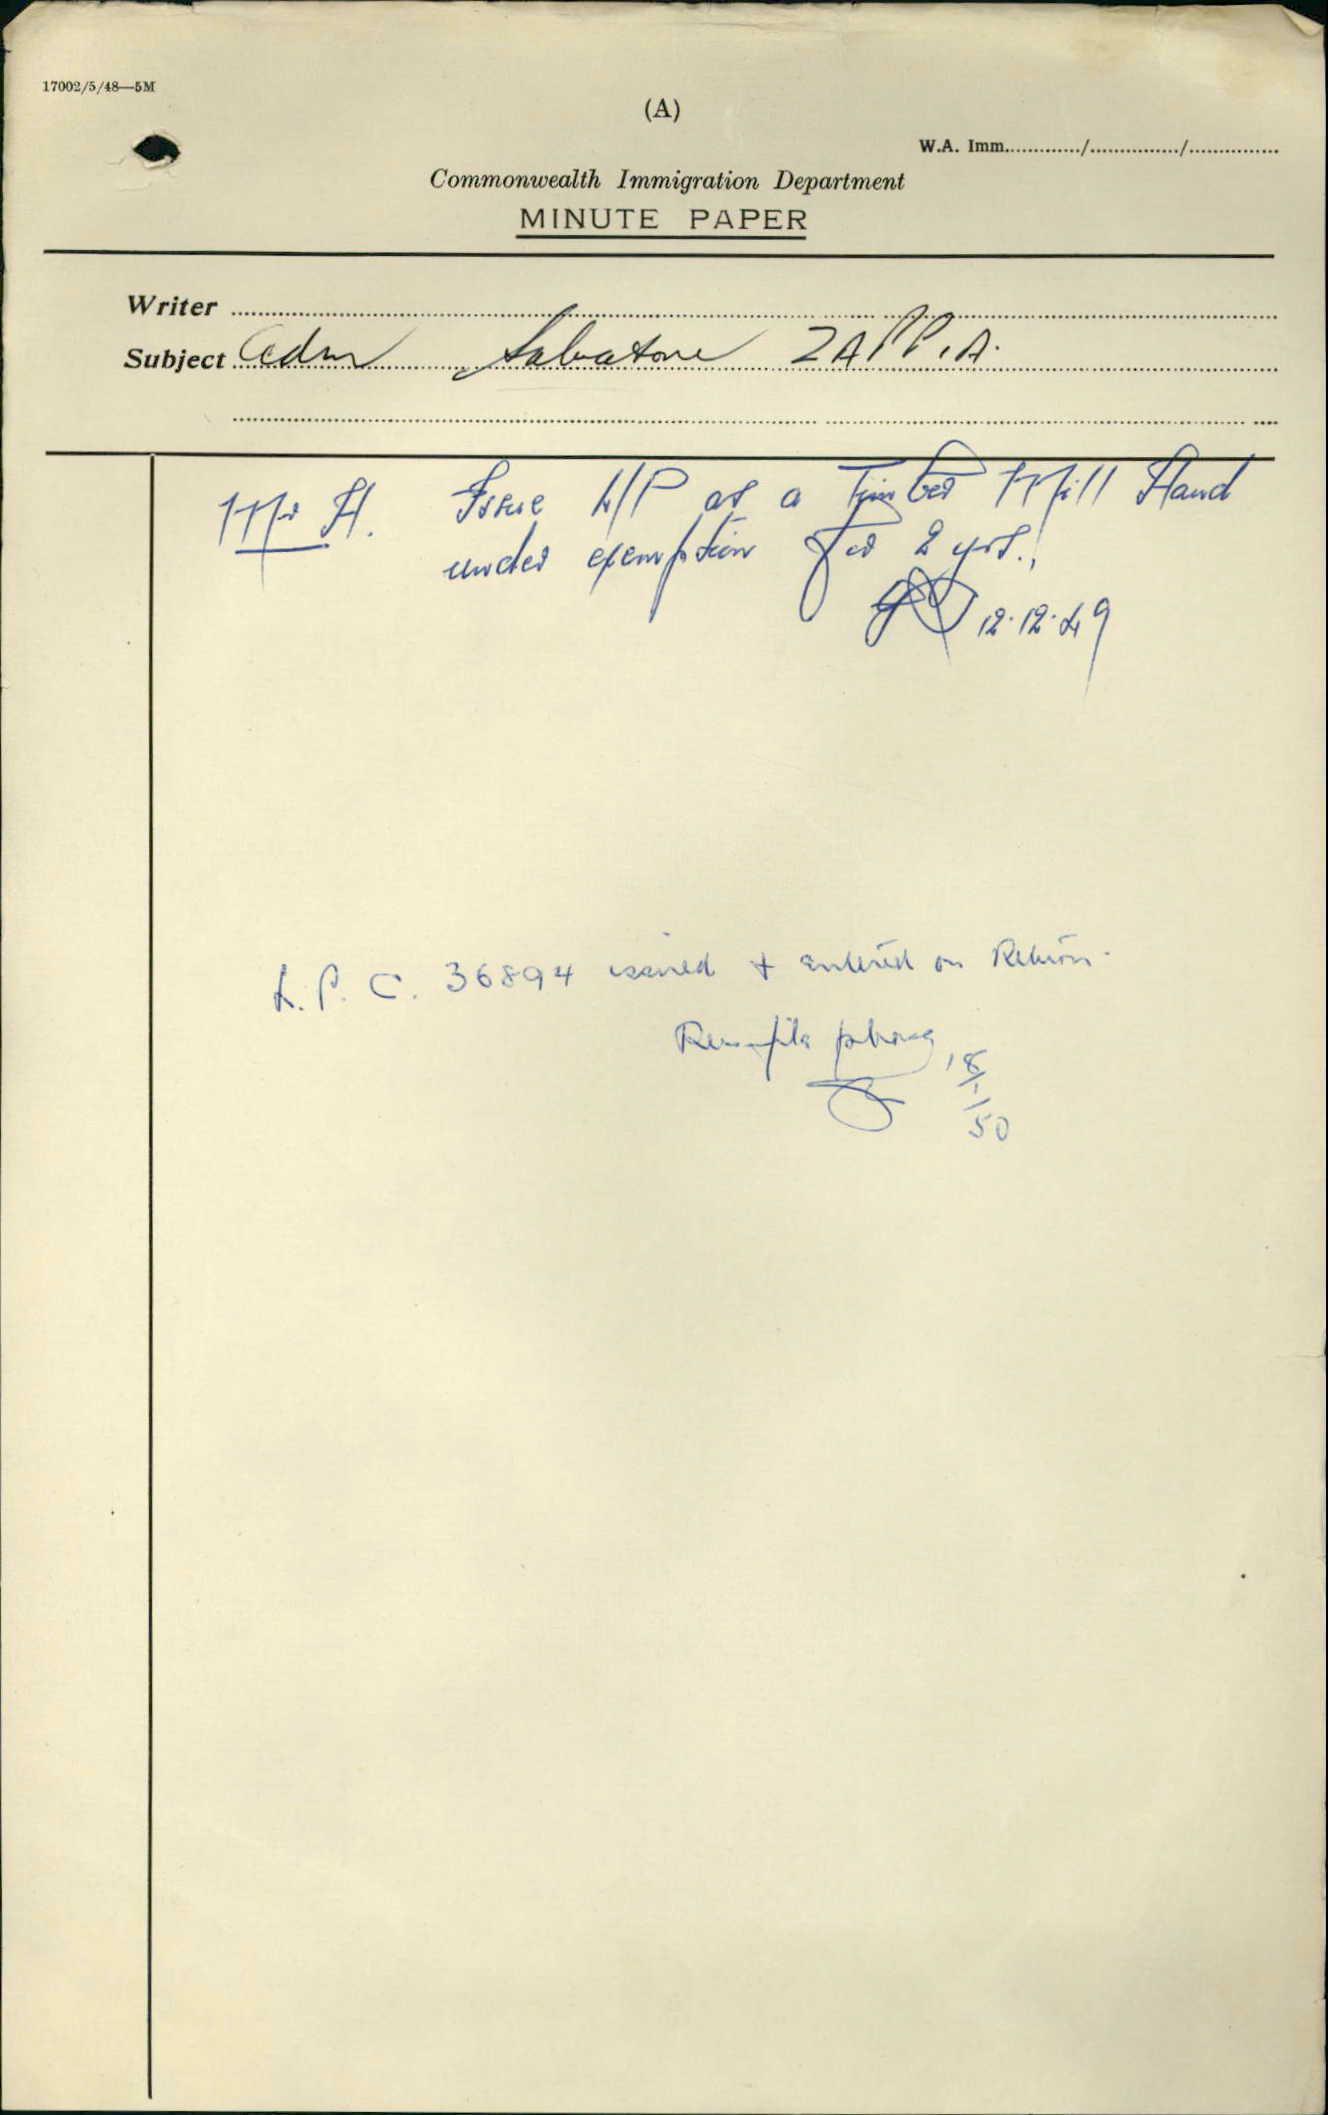 17002/5/48—5M
(A)
W.A. Imm............./.............../...............
Commonwealth Immigration Department
MINUTE PAPER
Writer
Subject Adm Salvatore ZAPPIA.
Mr H. Issue L/P as a Timber Mill Hand
under exemption for 2 yrs.
12.12.49
L.P.C. 36894 issued & entered on Return.
18/1/50